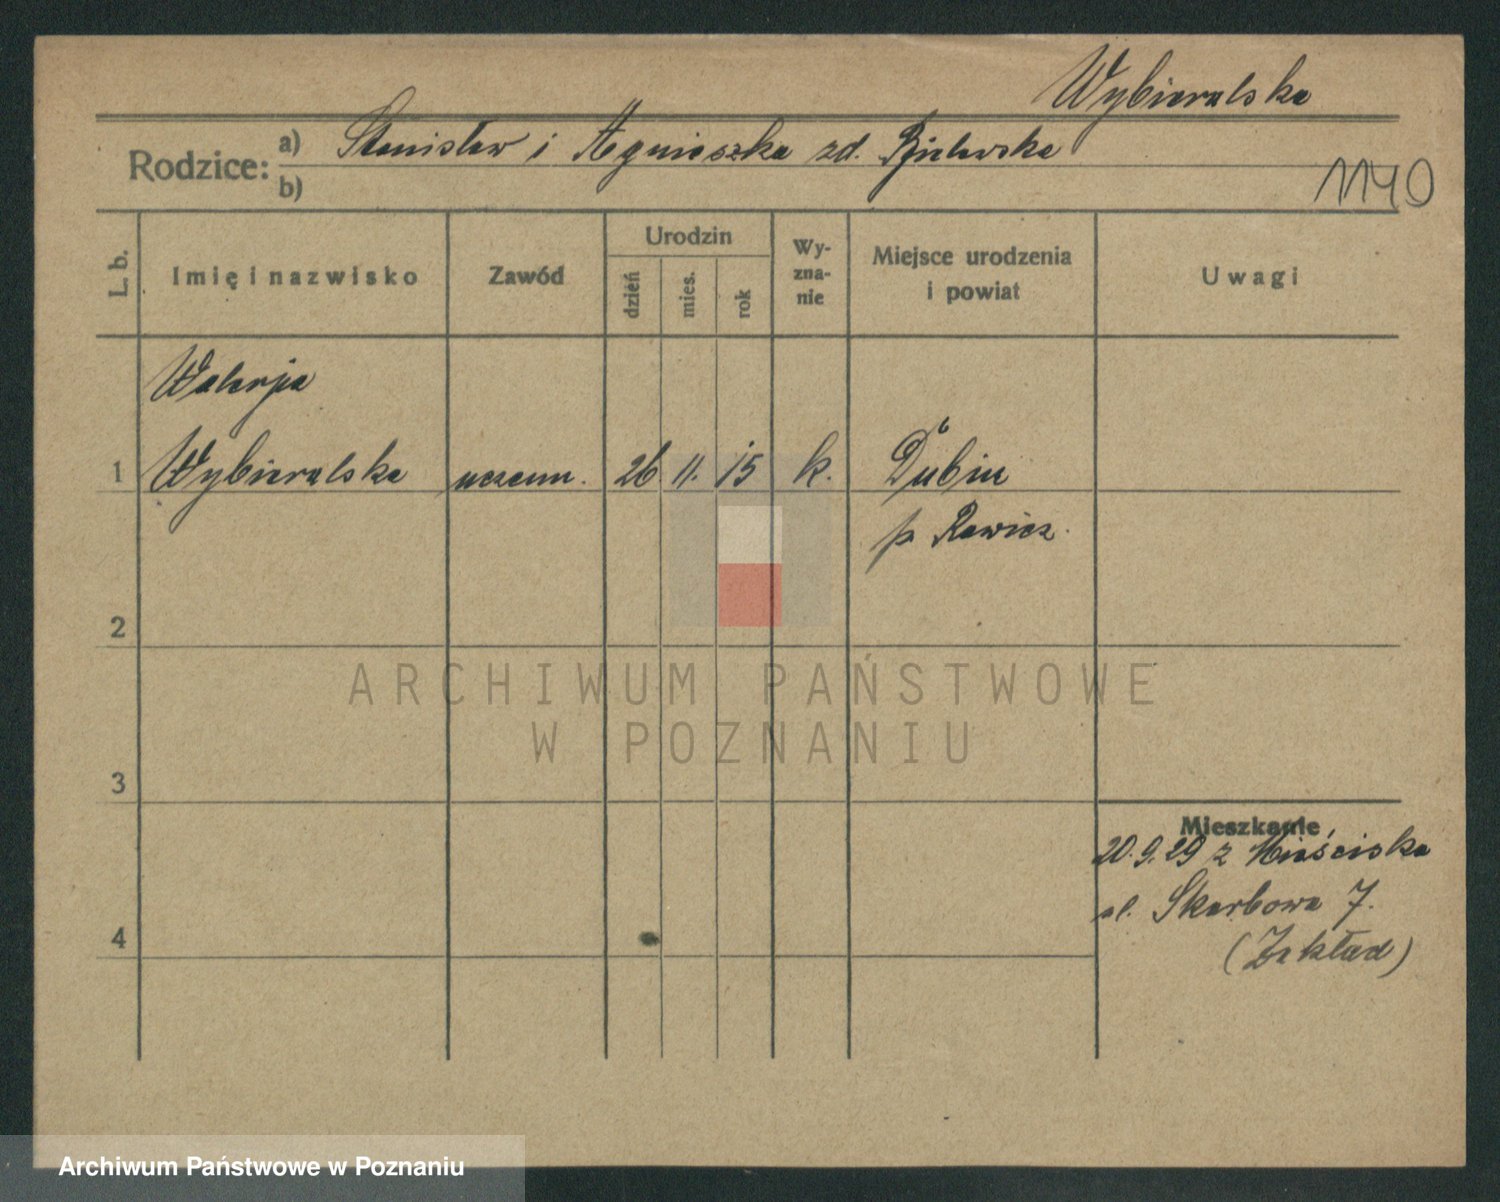 Wybieralska
Rodzice: a) Stanisław i Agnieszka zd.
b)
1140
L. b.
Imię i nazwisko
Zawód
Urodzin
dzień
mies.
rok
Wy-
zna-
nie
Miejsce urodzenia
i powiat
Uwagi
Walerja
1 Wybieralska uczenn. 26. 11. 15 k. Dubin
p. Rawicz.
2
3
4
Mieszkanie
20.9.29 z Mieściska
ul. Skarbowa 7.
(Zakład)
ARCHIWUM PAŃSTWOWE
W POZNANIU
Archiwum Państwowe w Poznaniu